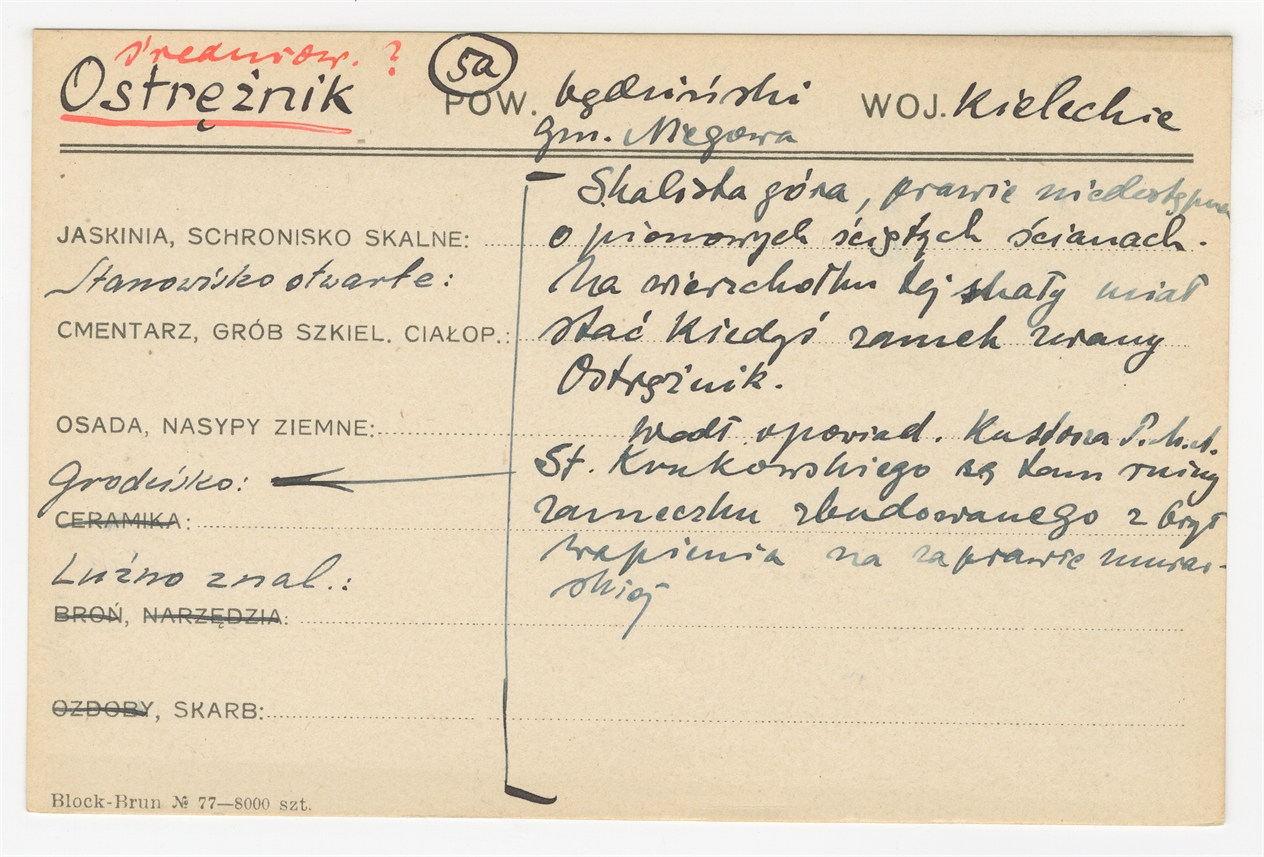 średniow. ?
Ostrężnik 5a POW. będziński WOJ. Kieleckie
gm. Niegowa
Skalista góra, prawie niedostępna
JASKINIA, SCHRONISKO SKALNE: o pionowych ściętych ścianach.
Stanowisko otwarte: Na wierzchołku tej skały miał
CMENTARZ, GRÓB SZKIEL. CIAŁOP.: stać kiedyś zamek zwany
Ostrężnik.
OSADA, NASYPY ZIEMNE: wedł. opowiad. Kustosza P.M.A.
Grodzisko: St. Krukowskiego są tam ruiny
CERAMIKA: zameczku zbudowanego z brył
wapienia na zaprawie murar-
Luźno znal.: skiej
BROŃ, NARZĘDZIA:
OZDOBY, SKARB:
Block-Brun № 77—8000 szt.